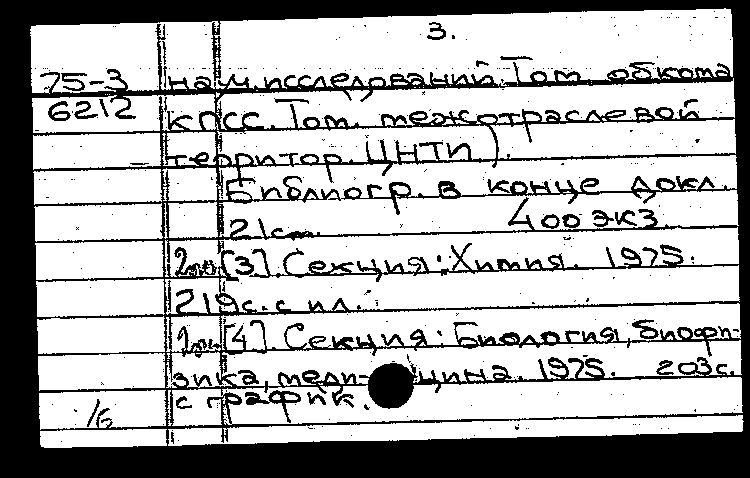 3.
75-3 науч. исследований. Том. обкома
6212 КПСС. Том. межотраслевой
территор. ЦНТИ).
Библиогр. в конце докл.
21см. 400 экз.
[3]. Секция: Химия. 1975.
219с. с ил.
[4]. Секция: Биология, биофи-
зика, меди-цина. 1975. 203с.
с график.
/б